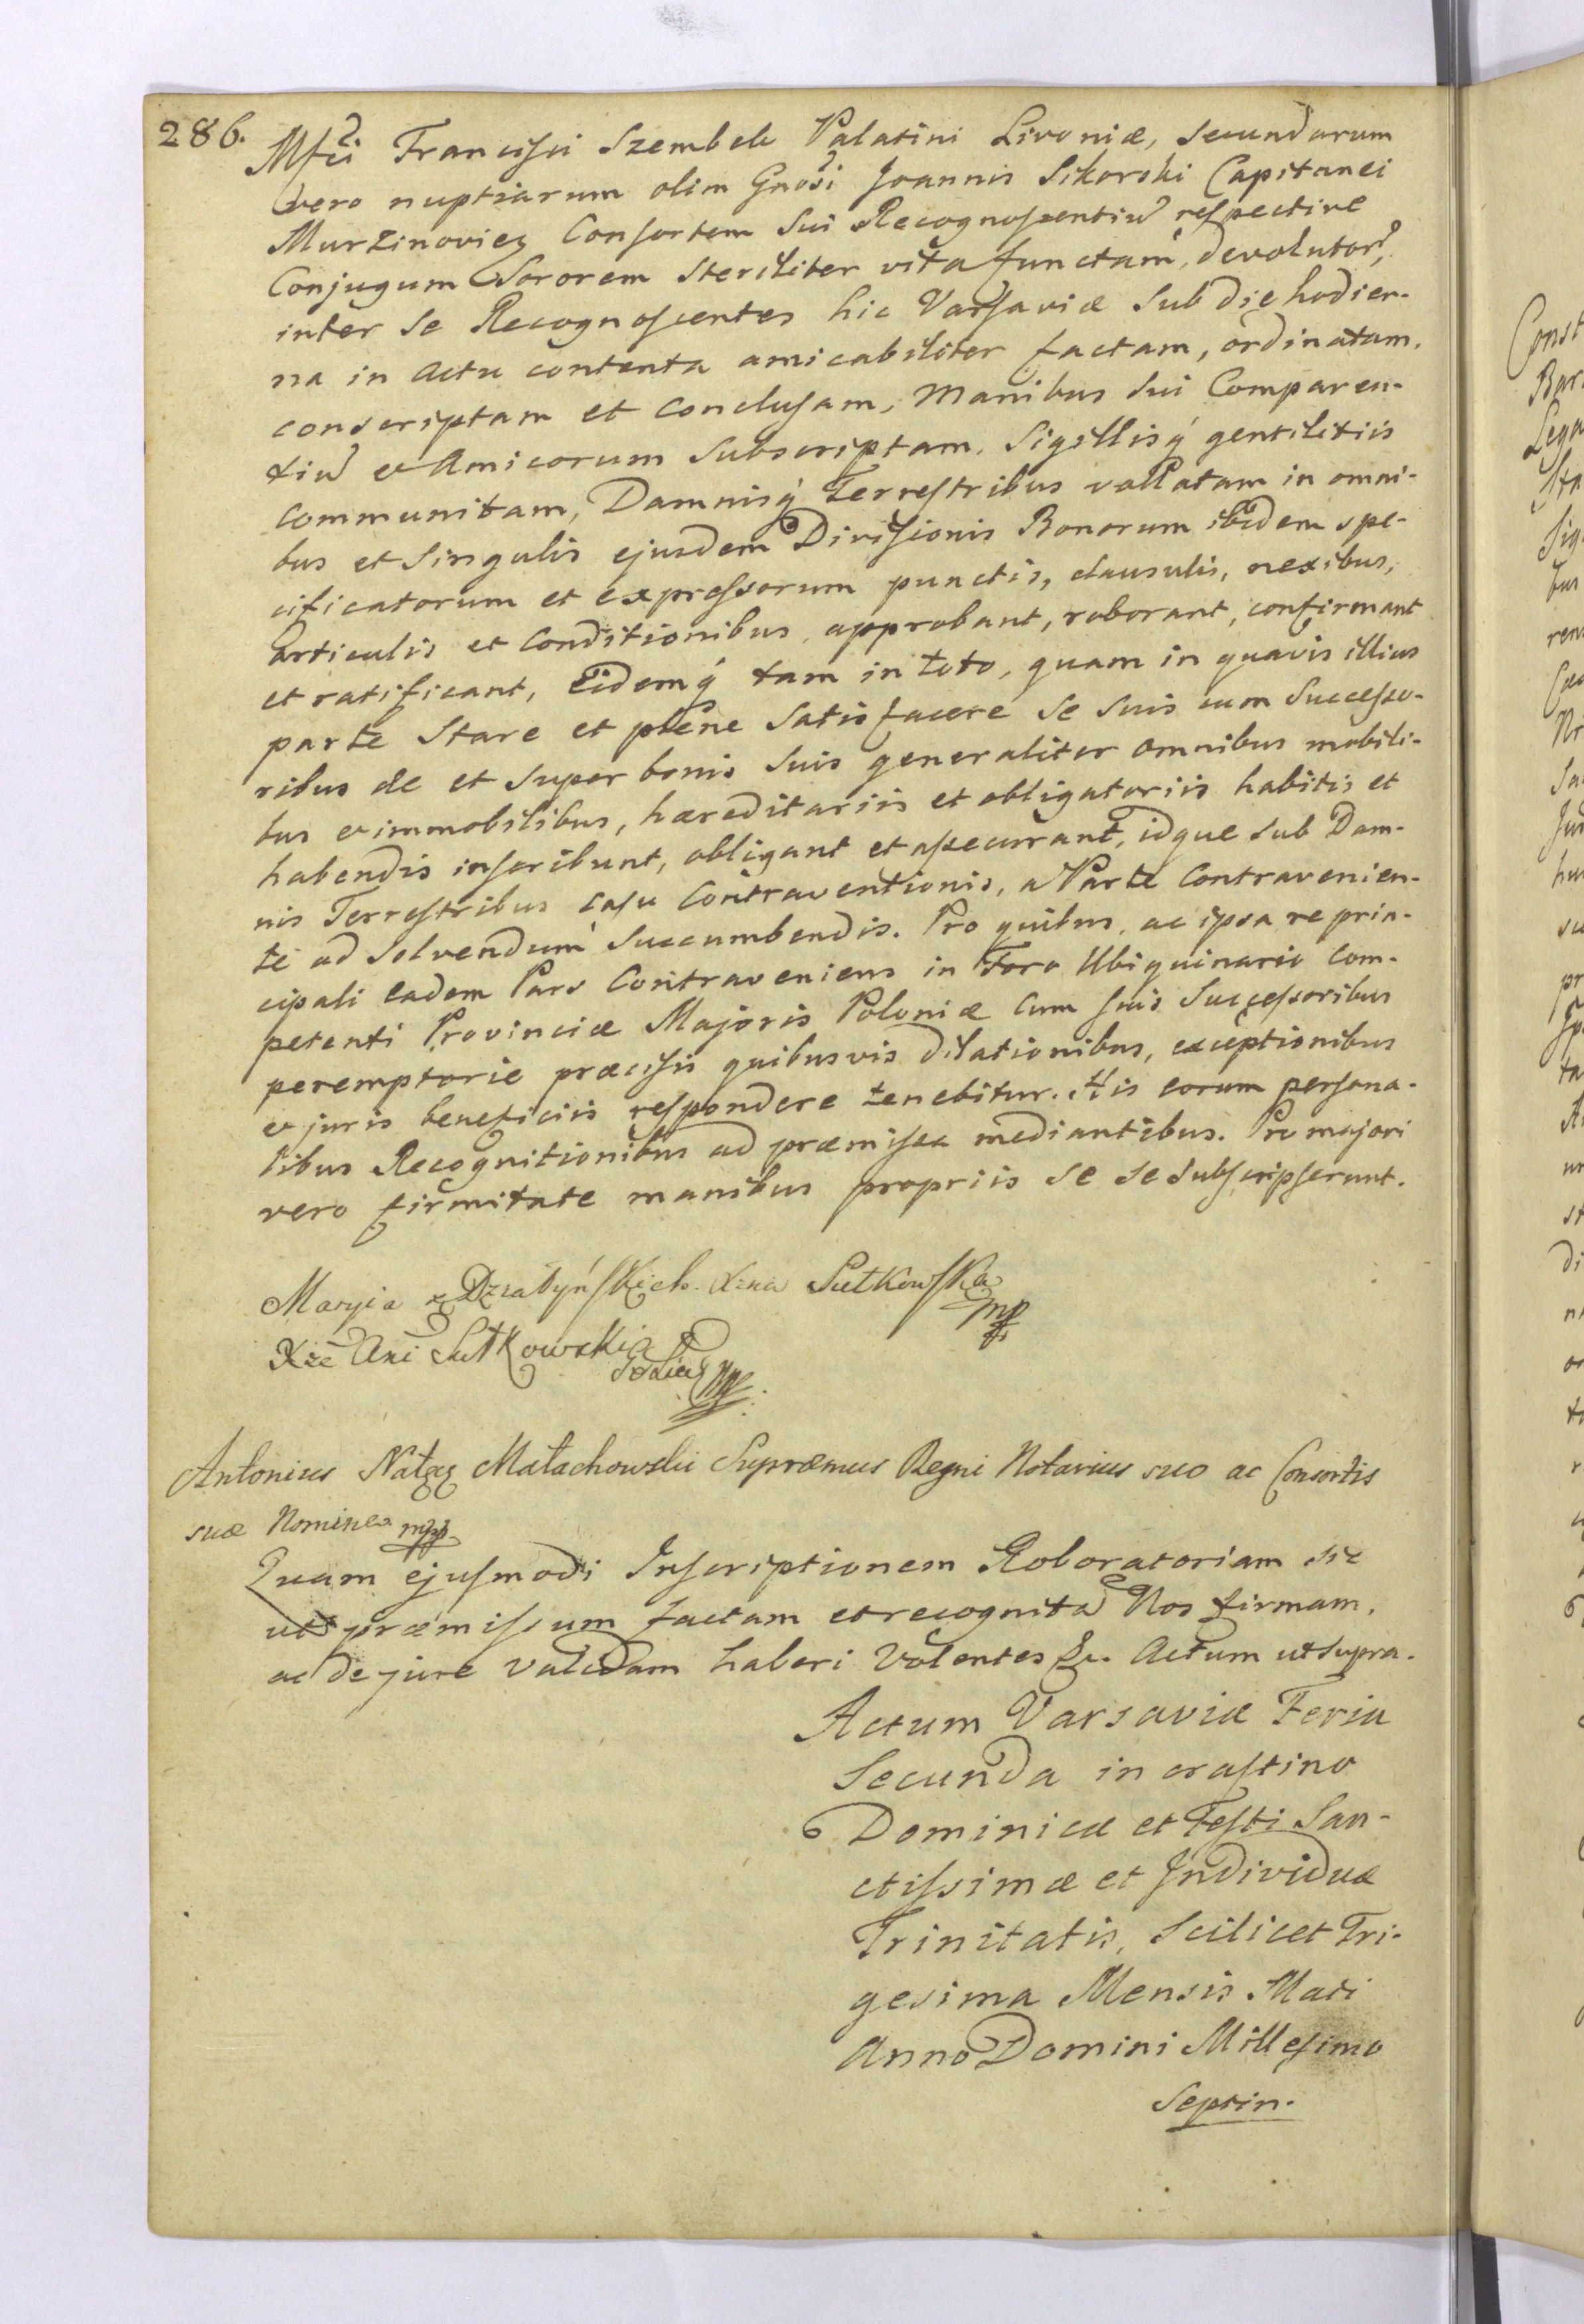 286.
Mfci Francisci Szembek Palatini Livoniæ, secundarum
vero nuptiarum olim Gnosi Joannis Sikorski Capitanei
Murzinoviez Consortem Sui Recognoscentiu respective
Conjugum Sororem steriliter vita functam, devolutor,
inter se Recognoscentes hic Varsaviæ sub die hodier-
na in Actu contenta amicabiliter factam, ordinatam,
conscriptam et conclusam, manibus sui Comparen-
tiu et Amicorum subscriptam, Sigillisq gentilitiis
communitam, Damnisq Terrestribus vallatam in omni-
bus et singulis ejusdem Divisionis Bonorum ibidem spe-
cificatorum et expressorum punctis, clausulis, nexibus,
Articulis et Conditionibus, approbant, roborant, confirmant
et ratificant, Eidemq tam in toto, quam in quavis illius
parte stare et plene satisfacere se suis cum Successo-
ribus de et super bonis suis generaliter omnibus mobili-
bus et immobilibus, hæreditariis et obligatoriis habitis et
habendis inscribunt, obligant et assecurant, idque sub Dam-
nis Terrestribus casu contraventionis, a Parte contravenien-
te ad solvendum succumbendis. Pro quibus, ac ipsa re prin-
cipali eadem Pars Contraveniens in Foro Ubiquinario com-
petenti Provinciæ Majoris Poloniæ cum suis Successoribus
peremptorie præcisis quibusvis dilationibus, exceptionibus
et juris beneficiis respondere tenebitur. His eorum persona-
libus Recognitionibus ad præmissa mediantibus. Pro majori
vero firmitate manibus propriis se se subscripserunt.
Maryia z Działyńskich Xzna Sułkowska mp
Xże Ani Sułkowski mp
Antonius Nałęcz Małachowski Supræmus Regni Notarius suo ac Consortis
suæ Nomine mpp
Quam ejusmodi Inscriptionem Roboratoriam sic
ut præmissum factam et recognita Nos firmam,
ac de jure validam haberi volentes &c. Actum ut supra.
Actum Varsaviæ Feria
Secunda in crastino
Dominicæ et Festi San-
ctissimæ et Individuæ
Trinitatis, scilicet Tri-
gesima Mensis Maii
Anno Domini Millesimo
Septin.